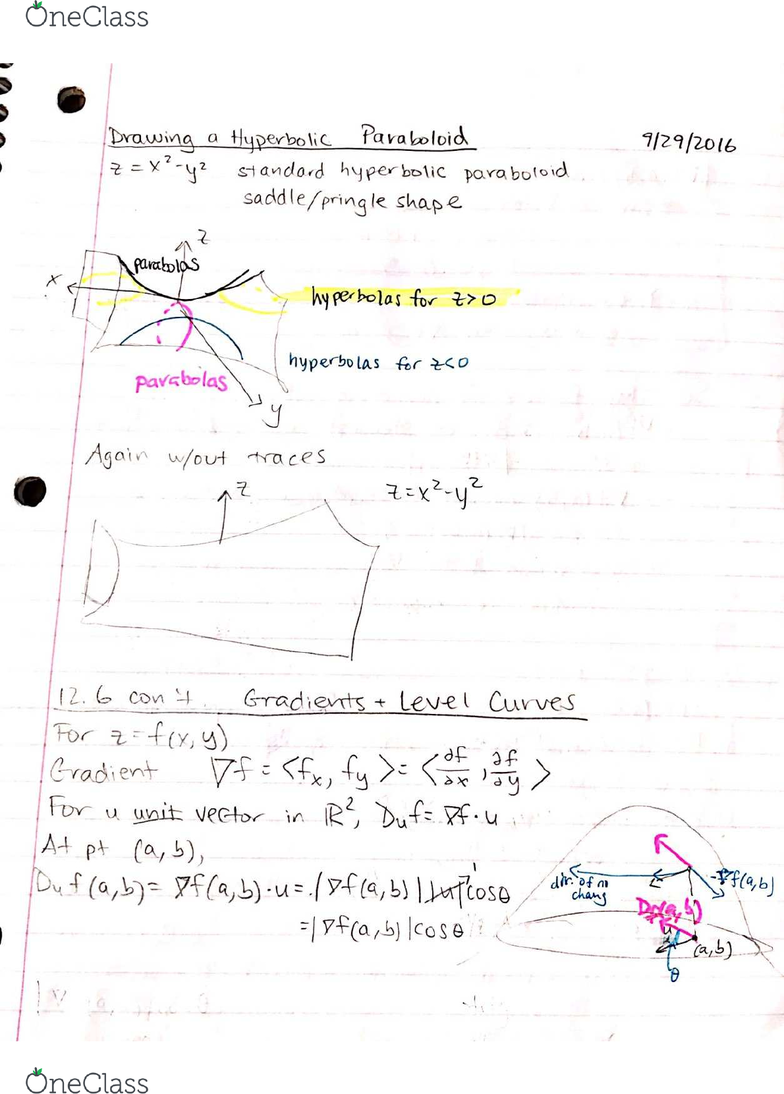 OneClass
Drawing a Hyperbolic Paraboloid 9/29/2016
z = x²-y² standard hyperbolic paraboloid
saddle/pringle shape
z
parabolas
x
hyperbolas for z>0
hyperbolas for z<0
parabolas
y
Again w/out traces
z
z=x²-y²
12.6 con't Gradients + Level Curves
For z=f(x,y)
Gradient ∇f = <fx, fy> = <∂f/∂x, ∂f/∂y>
For u unit vector in ℝ², Duf = ∇f·u
At pt (a,b),
Duf(a,b) = ∇f(a,b)·u = |∇f(a,b)||u|¹cosθ
=|∇f(a,b)|cosθ
dir. of no
chang
-∇f(a,b)
u
(a,b)
θ
OneClass